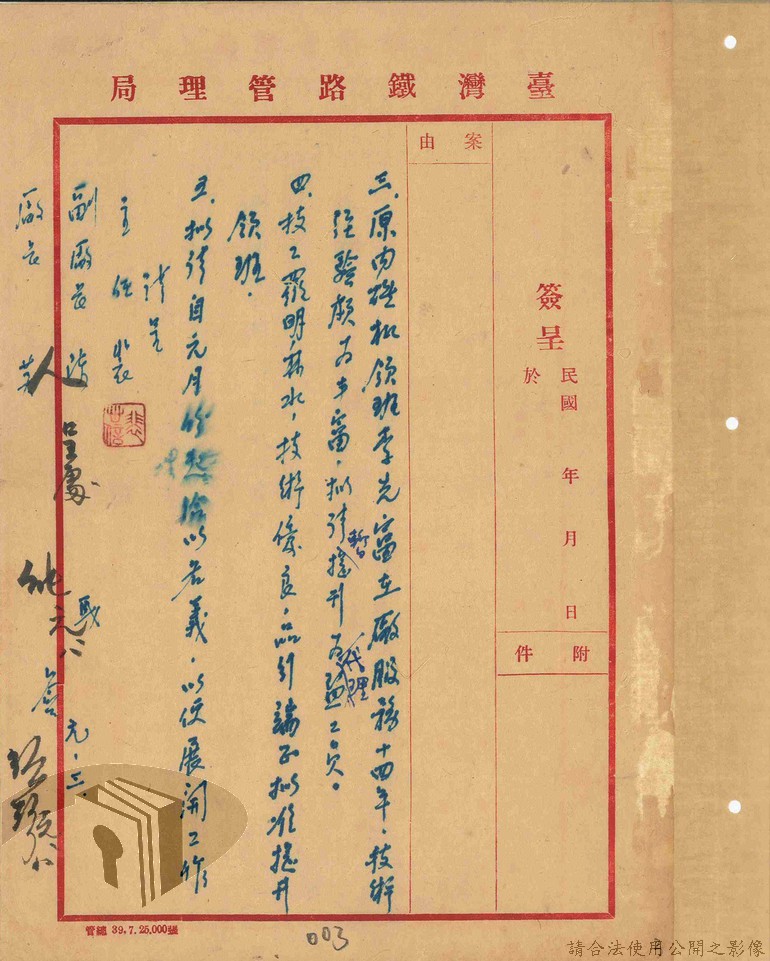 臺灣鐵路管理局
案由
簽呈
民國 年 月 日
於
附件
三、原內燃机領班李先富在廠服務十四年,技術
經驗頗為丰富,拟請暫擢升為代理監工員。
四、技工羅明森水,技術優良,品行端正拟准擢升
領班。
五、拟請自元月份起給以名義,以便展開工作
請呈
主任裴
副廠長
廠長
呈處
元、三、
管總 39.7.25,000張
003
請合法使用公開之影像